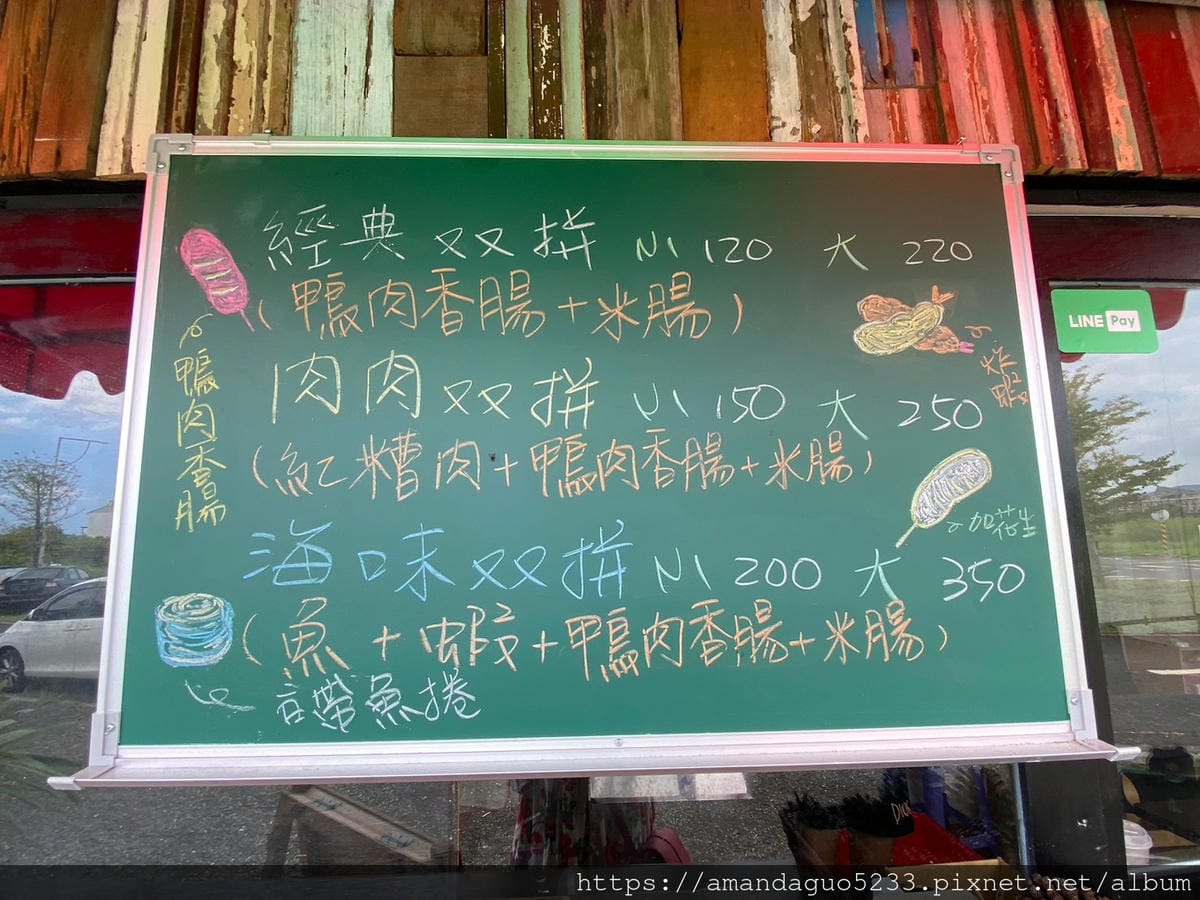 經典双拼 小120 大 220
(鴨肉香腸+米腸)
肉肉双拼 小150 大 250
(紅糟肉+鴨肉香腸+米腸)
海味双拼 小200 大 350
(魚+蝦+鴨肉香腸+米腸)
鴨肉香腸
炸蝦
加花生
白帶魚捲
LINE Pay
https://amandaguo5233.pixnet.net/album